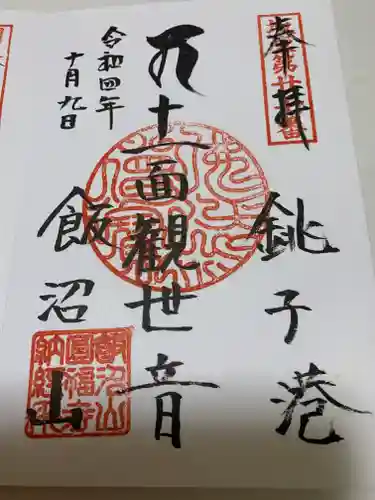 奉拝
銚子港
十一面観世音
飯沼山
令和四年
十月九日
飯沼山
圓福寺
納経印